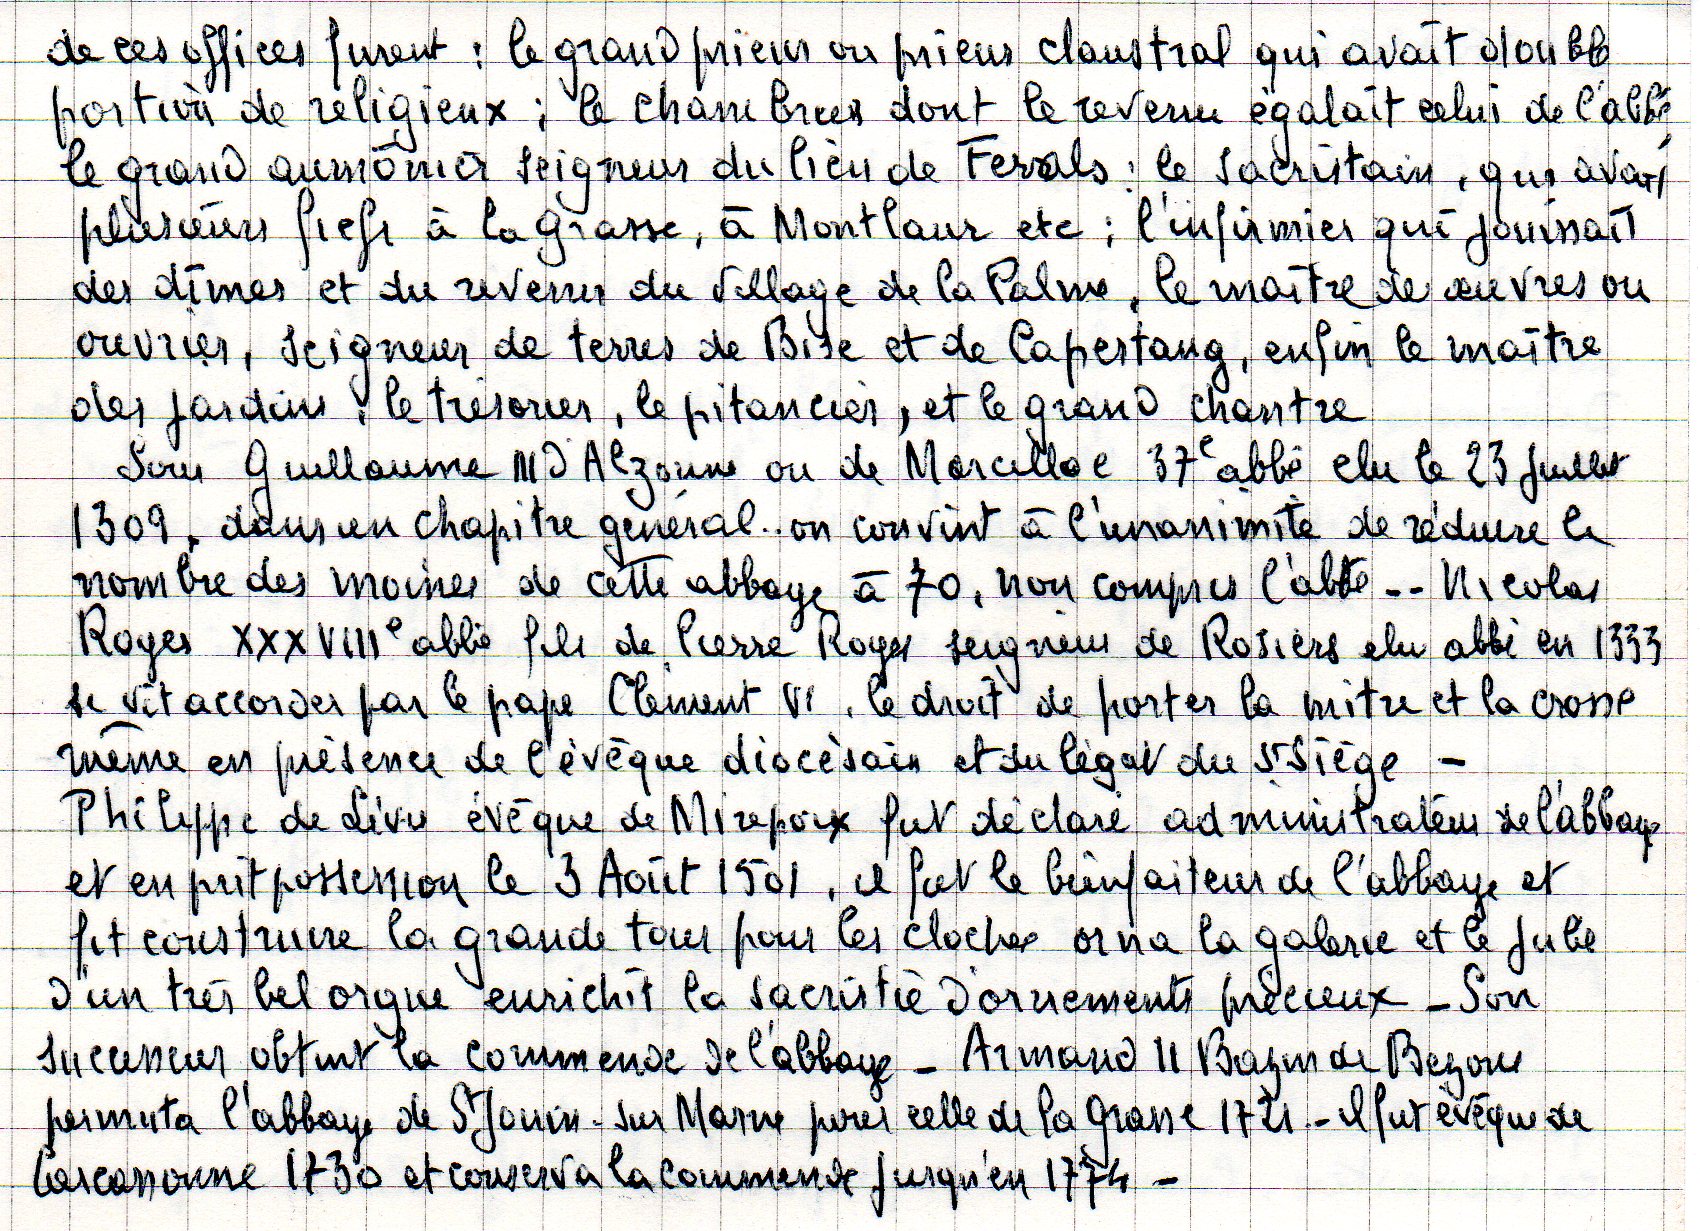 de ces offices furent : le grand prieur ou prieur claustral qui avait double
portion de religieux ; le chambrier dont le revenu égalait celui de l'abbé
le grand aumônier seigneur du lieu de Ferals ; le sacristain, qui avait
plusieurs fiefs à la Grasse, à Montlaur etc ; l'infirmier qui jouissait
des dîmes et du revenu du village de la Palme, le maître de œuvres ou
ouvrier, seigneur de terres de Bize et de Capestang, enfin le maître
des jardins, le trésorier, le pitancier, et le grand chantre
Sous Guillaume III D'Alzonne ou de Marcillac 37e abbé elu le 23 Juillet
1309, dans un chapitre général.. on convint à l'unanimité de réduire le
nombre des moines de cette abbaye à 70, non compris l'abbé -- Nicolas
Roger XXXVIIIe abbé fils de Pierre Roger seigneur de Rosiers elu abbé en 1333
se vit accorder par le pape Clement VI, le droit de porter la mitre et la crosse
même en présence de l'évêque diocésain et du légat du St Siège -
Philippe de Lévis évêque de Mirepoix fut déclaré administrateur de l'abbaye
et en prit possession le 3 Août 1501, il fut le bienfaiteur de l'abbaye et
fit construire la grande tour pour les cloches orna la galerie et le jubé
d'un très bel orgue enrichit la sacristie d'ornements précieux - Son
successeur obtint la commende de l'abbaye - Armand II Bazin de Bezons
permuta l'abbaye de St Jouin-sur Marne pour celle de la Grasse 1721 - il fut évêque de
Carcassonne 1730 et conserva la commende jusqu'en 1774 -